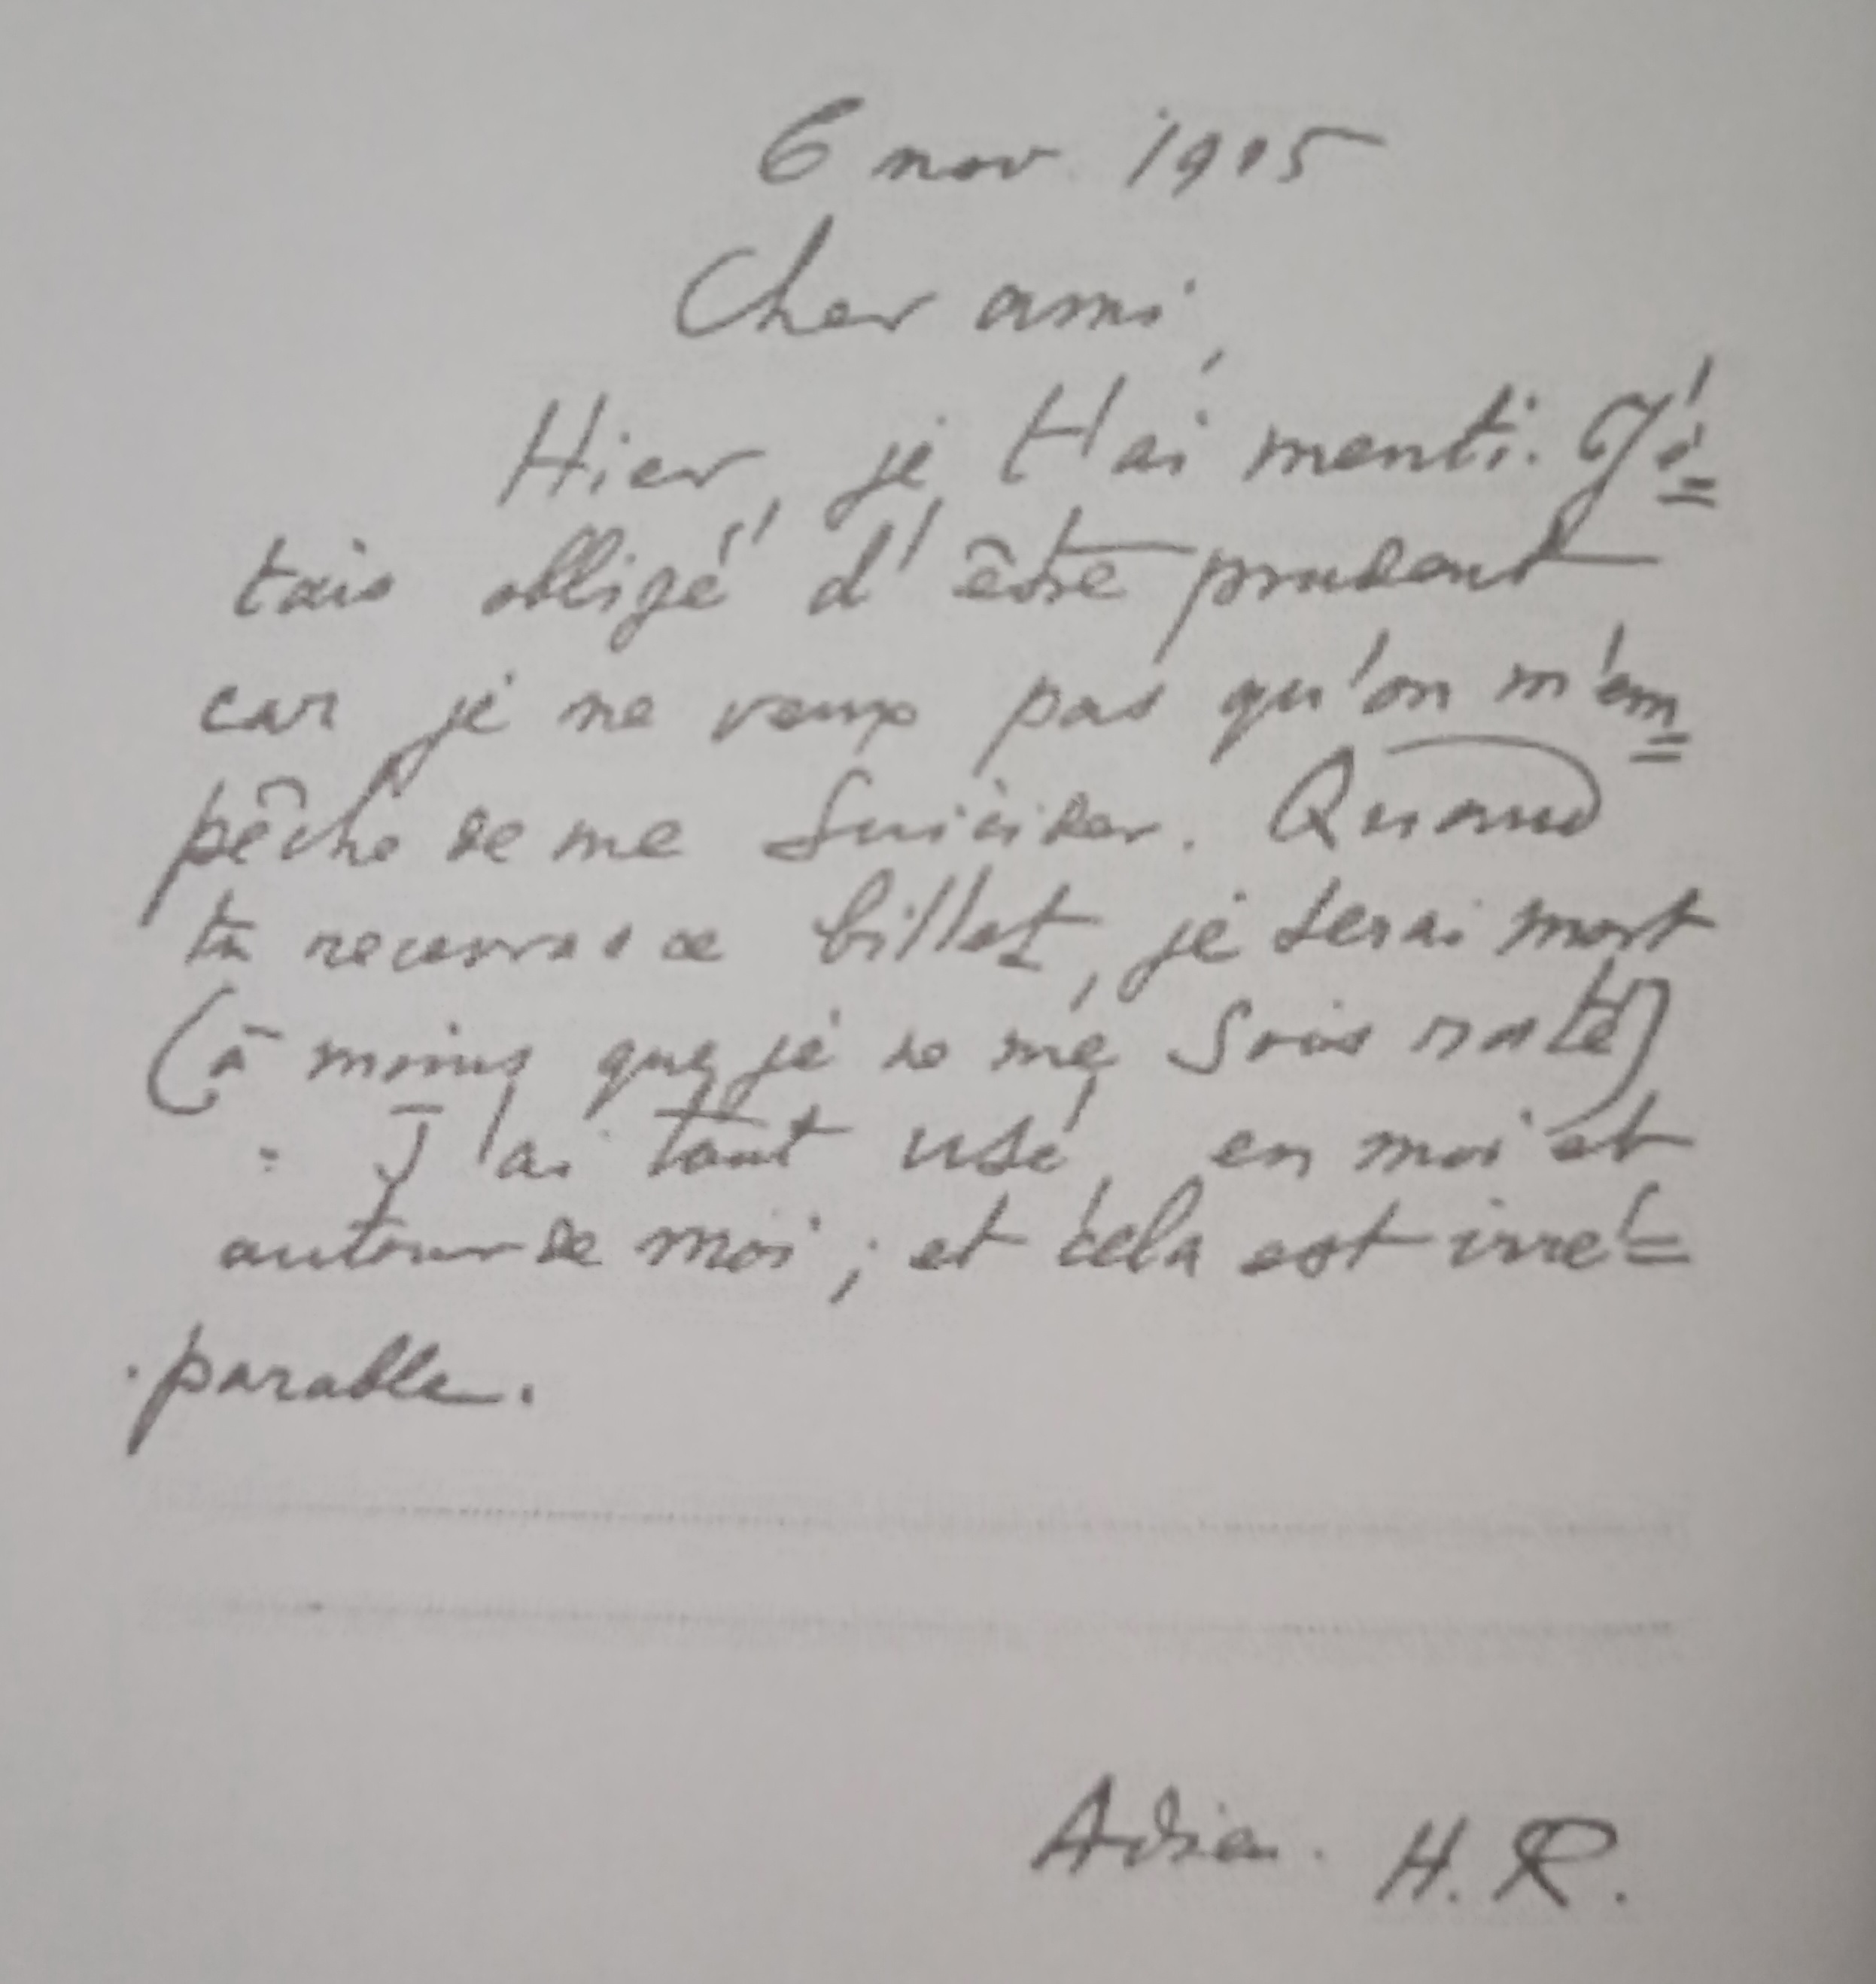 6 nov. 1905
Cher ami,
Hier, je t'ai menti. J'é=
tais obligé d'être prudent
car je ne veux pas qu'on m'em=
pêche de me suicider. Quand
tu recevras ce billet, je serai mort
(à moins que je ne me sois raté)
. J'ai tout usé, en moi et
autour de moi ; et cela est irré=
parable.
Adieu. H. R.